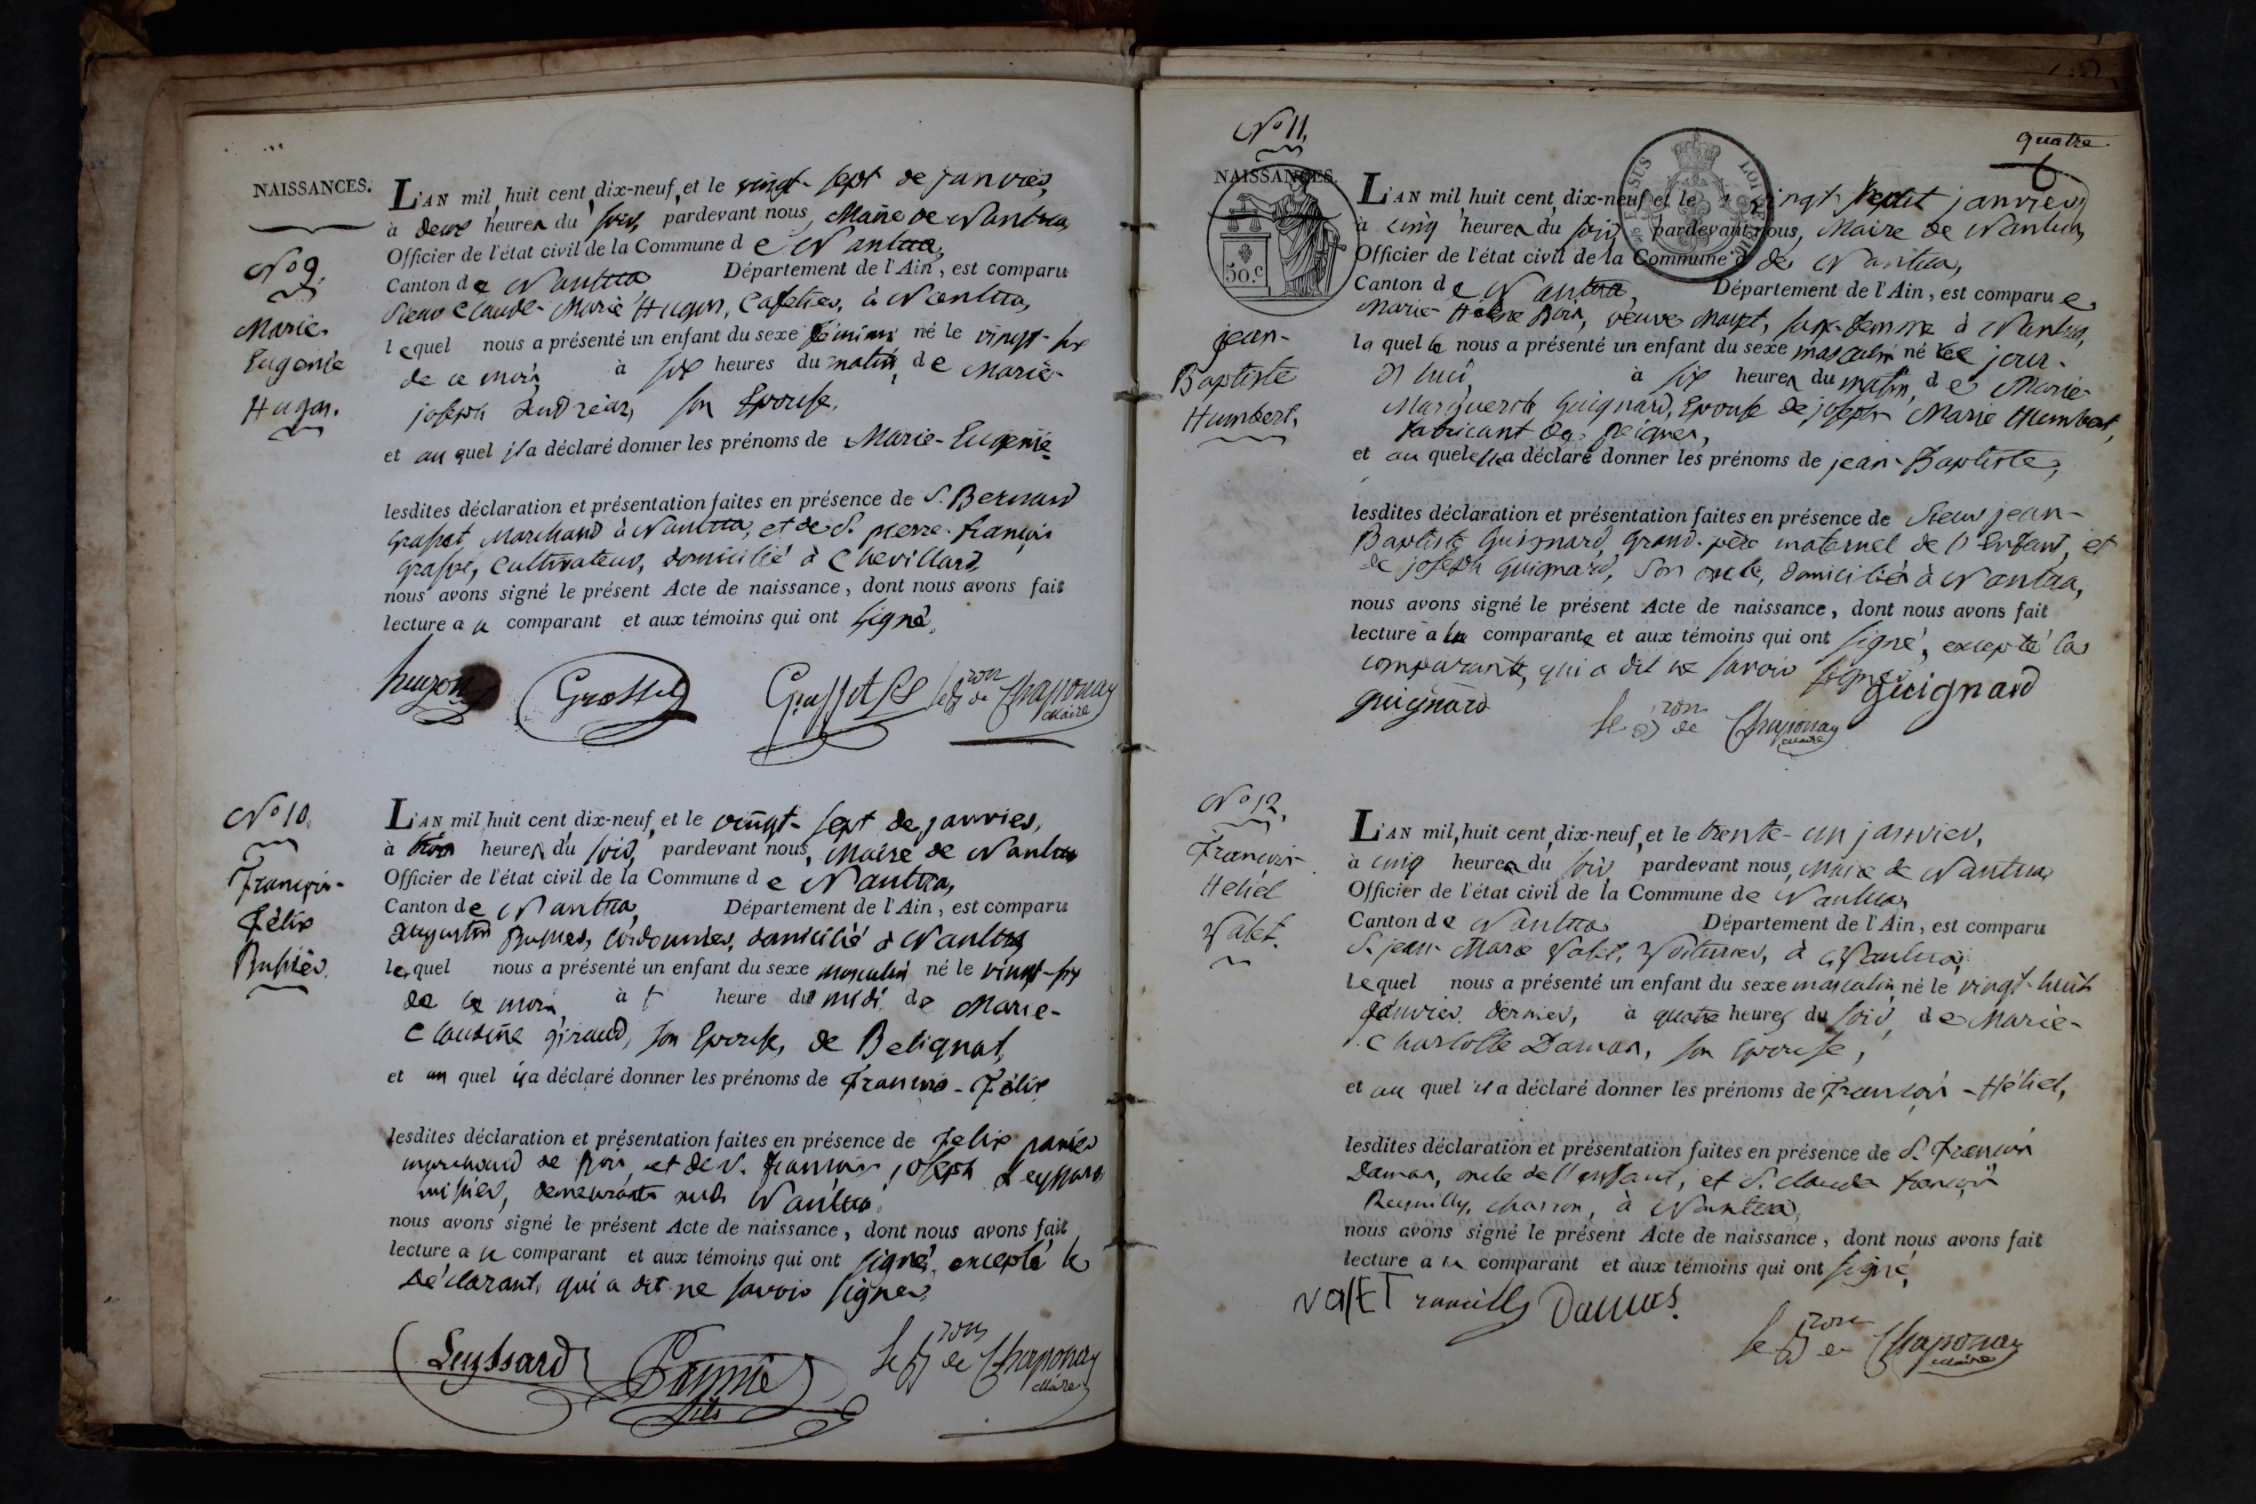 NAISSANCES.
N° 9.
Marie-
Eugenie
Hugon.
L'AN mil huit cent dix-neuf, et le vingt-sept de janvier,
à deux heures du soir, pardevant nous, Maire de Nantua,
Officier de l'état civil de la Commune de Nantua,
Canton de Nantua, Département de l'Ain, est comparu
Sieur Claude-Marie Hugon, Cafetier, à Nantua,
lequel nous a présenté un enfant du sexe féminin né le vingt-six
de ce mois, à six heures du matin, de Marie-
joseph Andréar, son Epouse,
et au quel il a déclaré donner les prénoms de Marie-Eugenie
lesdites déclaration et présentation faites en présence de S. Bernard
Grasset, Marchand à Nantua, et de S. pierre-françois
Grasset, Cultivateur, domicilié à Chevillard,
nous avons signé le présent Acte de naissance, dont nous avons fait
lecture a u comparant et aux témoins qui ont signé,
hugon Grasset Grasset le Bron de Chaponay
Maire
N° 10.
François-
Félix
Bussier.
L'AN mil huit cent dix-neuf, et le vingt-sept de janvier,
à trois heures du soir, pardevant nous, Maire de Nantua
Officier de l'état civil de la Commune de Nantua,
Canton de Nantua, Département de l'Ain, est comparu
Augustin Bussier, Cordonnier, domicilié à Nantua
lequel nous a présenté un enfant du sexe masculin né le vingt-six
de ce mois, à heure du midi de Marie-
Claudine Giraud, son Epouse, de Belignat,
et au quel il a déclaré donner les prénoms de François-Félix
lesdites déclaration et présentation faites en présence de Felix
marchand de bois, et de S. françois joseph Leyssard
huissier, demeurants audit Nantua.
nous avons signé le présent Acte de naissance, dont nous avons fait
lecture a u comparant et aux témoins qui ont signé, excepté le
déclarant, qui a dit ne savoir signer.
Leyssard fils le Bron de Chaponay
Maire
quatre
N° 11.
NAISSANCES.
50.c
jean-
Baptiste
Humbert.
L'AN mil huit cent dix-neuf, et le vingt-sept janvier,
à cinq heures du soir, pardevant nous, Maire de Nantua,
Officier de l'état civil de la Commune d de Nantua,
Canton de Nantua, Département de l'Ain, est comparue
Marie- Bois, veuve sage-femme à Nantua,
laquelle nous a présenté un enfant du sexe masculin né le jour
d'hui, à six heures du matin, de Marie-
Marguerite Guignard, Epouse de joseph Marie Humbert,
fabricant de peignes,
et au quel elle a déclaré donner les prénoms de jean-Baptiste,
lesdites déclaration et présentation faites en présence de Sieur jean-
Baptiste Guignard, Grand-père maternel de l'Enfant, et
de joseph Guignard, son oncle, domiciliés à Nantua,
nous avons signé le présent Acte de naissance, dont nous avons fait
lecture a la comparante et aux témoins qui ont signé, excepté la
comparante, qui a dit ne savoir signer.
guignard guignard
le Bron de Chaponay
Maire
N° 12.
François-
Héliel
Valet.
L'AN mil huit cent dix-neuf, et le trente-un janvier,
à cinq heures du soir pardevant nous, Maire de Nantua
Officier de l'état civil de la Commune de Nantua,
Canton de Nantua Département de l'Ain, est comparu
S. jean-Marie Valet, Voiturier, à Nantua,
Lequel nous a présenté un enfant du sexe masculin né le vingt-huit
janvier dernier, à quatre heures du soir, de Marie-
Charlotte Damas, son Epouse,
et au quel il a déclaré donner les prénoms de François-Héliel,
lesdites déclaration et présentation faites en présence de S. François
Damas, oncle de l'enfant, et S. Claude françois
à Nantua,
nous avons signé le présent Acte de naissance, dont nous avons fait
lecture a u comparant et aux témoins qui ont signé,
VALET Damas.
le Bron de Chaponay
Maire